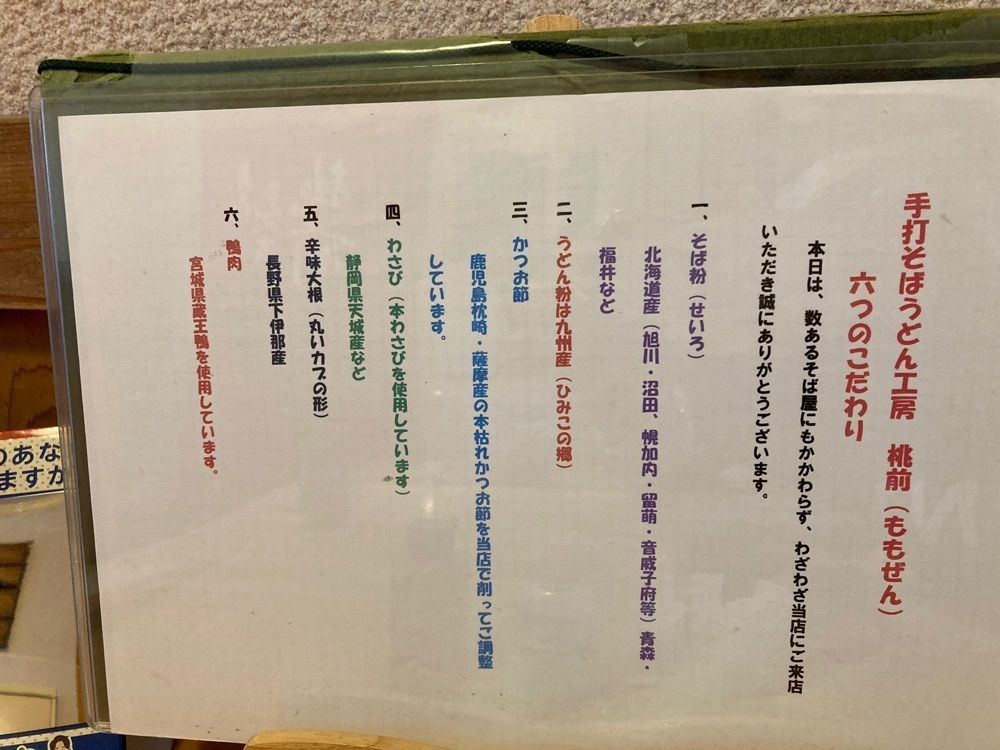 手打そばうどん工房　桃前（ももぜん）
六つのこだわり
本日は、数あるそば屋にもかかわらず、わざわざ当店にご来店
いただき誠にありがとうございます。
一、そば粉（せいろ）
北海道産（旭川・沼田、幌加内・留萌・音威子府等）青森・
福井など
二、うどん粉は九州産（ひみこの郷）
三、かつお節
鹿児島枕崎・薩摩産の本枯れかつお節を当店で削ってご調整
しています。
四、わさび（本わさびを使用しています）
静岡県天城産など
五、辛味大根（丸いカブの形）
長野県下伊那産
六、鴨肉
宮城県蔵王鴨を使用しています。
のあな
ますか